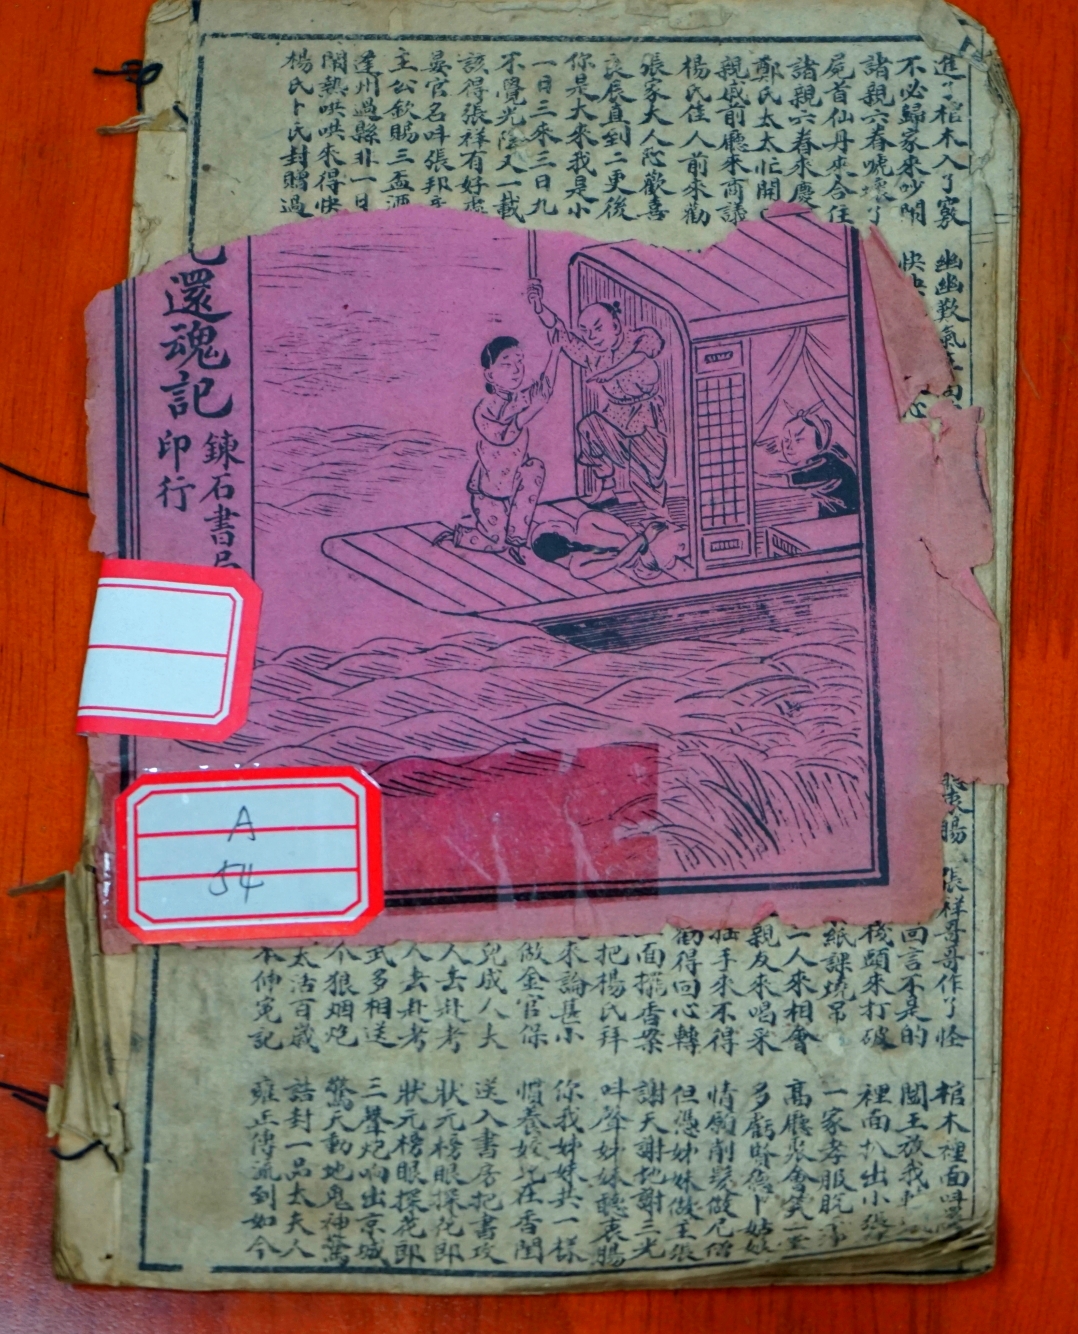 進了棺木入了竅
不必歸家來吵鬧
諸親六眷唬壞了
屍首仙丹來合住
諸親六眷來慶
鄭氏太太忙開
親戚前廳來商議
楊氏佳人前來勸
張家大人心歡喜
良辰直到二更後
你是大來我是小
一日三來三日九
不覺光陰又一載
該得張祥有好處
晏官名呌張邦
主公欽賜三盃酒
逢州過縣非一日
鬧熱哄哄來得快
楊氏卜氏封贈過
幽幽歎氣
快快
還魂記
鍊石書局
印行
腸
張祥哥哥作了怪
回言不是的
後頭來打破
紙課燒吊
二人來相會
親友來喝采
手來不得
勸得回心轉
面擺香案
把楊氏拜
來論甚小
做金官保
兒成人大
人去赴考
人去赴考
武多相送
个狼烟炮
太活百歲
本伸冤記
棺木裡面
閻王放我
裡面扒出小張
一家孝服脫
高廳聚會笑
多虧賢德卜姑娘
情願削髮做尼僧
但憑姊妹做主張
謝天謝地謝三光
呌聲姊妹聽衷腸
你我姊妹共一樣
慣養嬌兒在香閨
送入書房把書攻
狀元榜眼探花郎
狀元榜眼探花郎
三聲炮响出京城
驚天動地鬼神驚
誥封一品太夫人
雍正傳流到如今
A
54